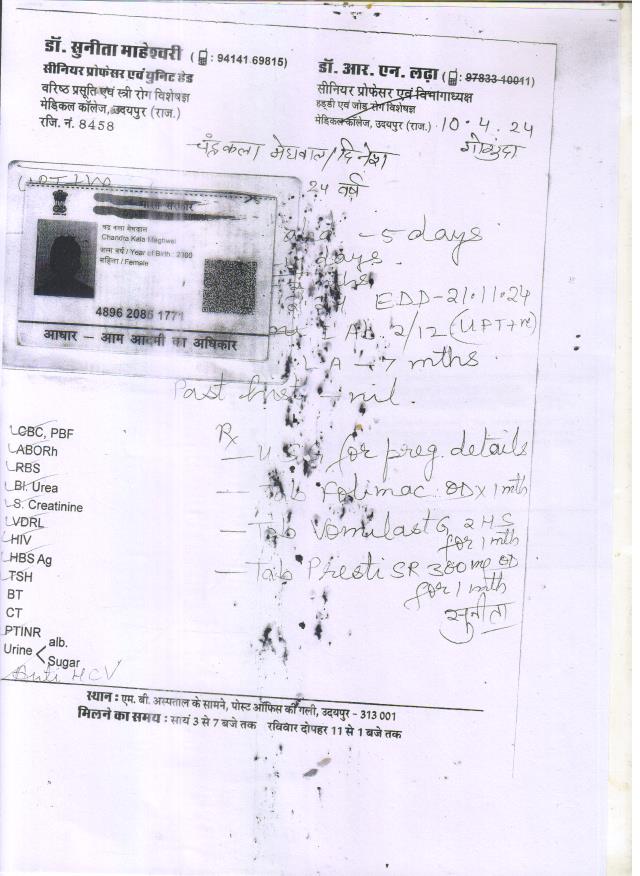 डॉ. सुनीता माहेश्वरी ( : 94141 69815)
सीनियर प्रोफेसर एवं युनिट हेड
वरिष्ठ प्रसूति एवं स्त्री रोग विशेषज्ञ
मेडिकल कॉलेज, उदयपुर (राज.)
रजि. नं. 8458
डॉ. आर. एन. लढ़ा ( : 97833 10011)
सीनियर प्रोफेसर एवं विभागाध्यक्ष
हड्डी एवं जोड़ रोग विशेषज्ञ
मेडिकल कॉलेज, उदयपुर (राज.)
10.4.24
चंद्रकला मेघवाल / दिनेश गोगुंदा
24 वर्ष
भारत सरकार
चंद्र कला मेघवाल
Chandra Kala Meghwal
जन्म वर्ष / Year of Birth :
महिला / Female
4896 2085 1771
आधार - आम आदमी का अधिकार
- 5 days
days.
EDD - 21.11.24
2/12 (UPT +ve)
LA - 7 mths
Past - nil.
CBC, PBF
ABORh
RBS
Bl. Urea
S. Creatinine
VDRL
HIV
HBS Ag
TSH
BT
CT
PTINR
Urine alb.
Sugar
Anti HCV
Rx
- for preg. details
- Tab Folimac OD x 1 mth
- Tab Vomilast G 2 HS
for 1 mth
- Tab Presti SR 300 mg OD
for 1 mth
सुनीता
स्थान : एम. बी. अस्पताल के सामने, पोस्ट ऑफिस की गली, उदयपुर - 313 001
मिलने का समय : सायं 3 से 7 बजे तक रविवार दोपहर 11 से 1 बजे तक